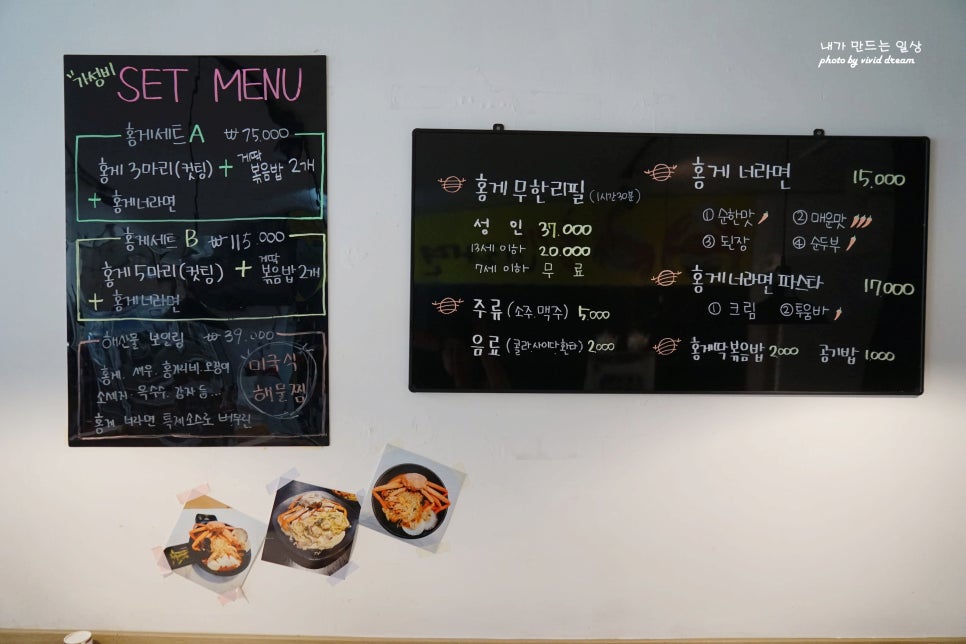 내가 만드는 일상
photo by vivid dream
"가성비
SET MENU
홍게세트 A ₩ 75.000
홍게 3마리(컷팅) + 게딱 볶음밥 2개
+ 홍게너라면
홍게세트 B ₩ 115.000
홍게 5마리(컷팅) + 게딱 볶음밥 2개
+ 홍게너라면
해산물 보일링 ₩ 39.000
미국식
해물찜
홍게. 새우. 홍가리비. 오징어
소세지. 옥수수. 감자 등...
홍게 너라면 특제소스로 버무린
홍게 무한리필 (1시간30분)
성인 37.000
13세 이하 20.000
7세 이하 무료
주류 (소주.맥주) 5000
음료 (콜라.사이다.환타) 2000
홍게 너라면 15,000
① 순한맛 ② 매운맛
③ 된장 ④ 순두부
홍게너라면 파스타 17000
① 크림 ② 투움바
홍게딱볶음밥 2000 공기밥 1.000